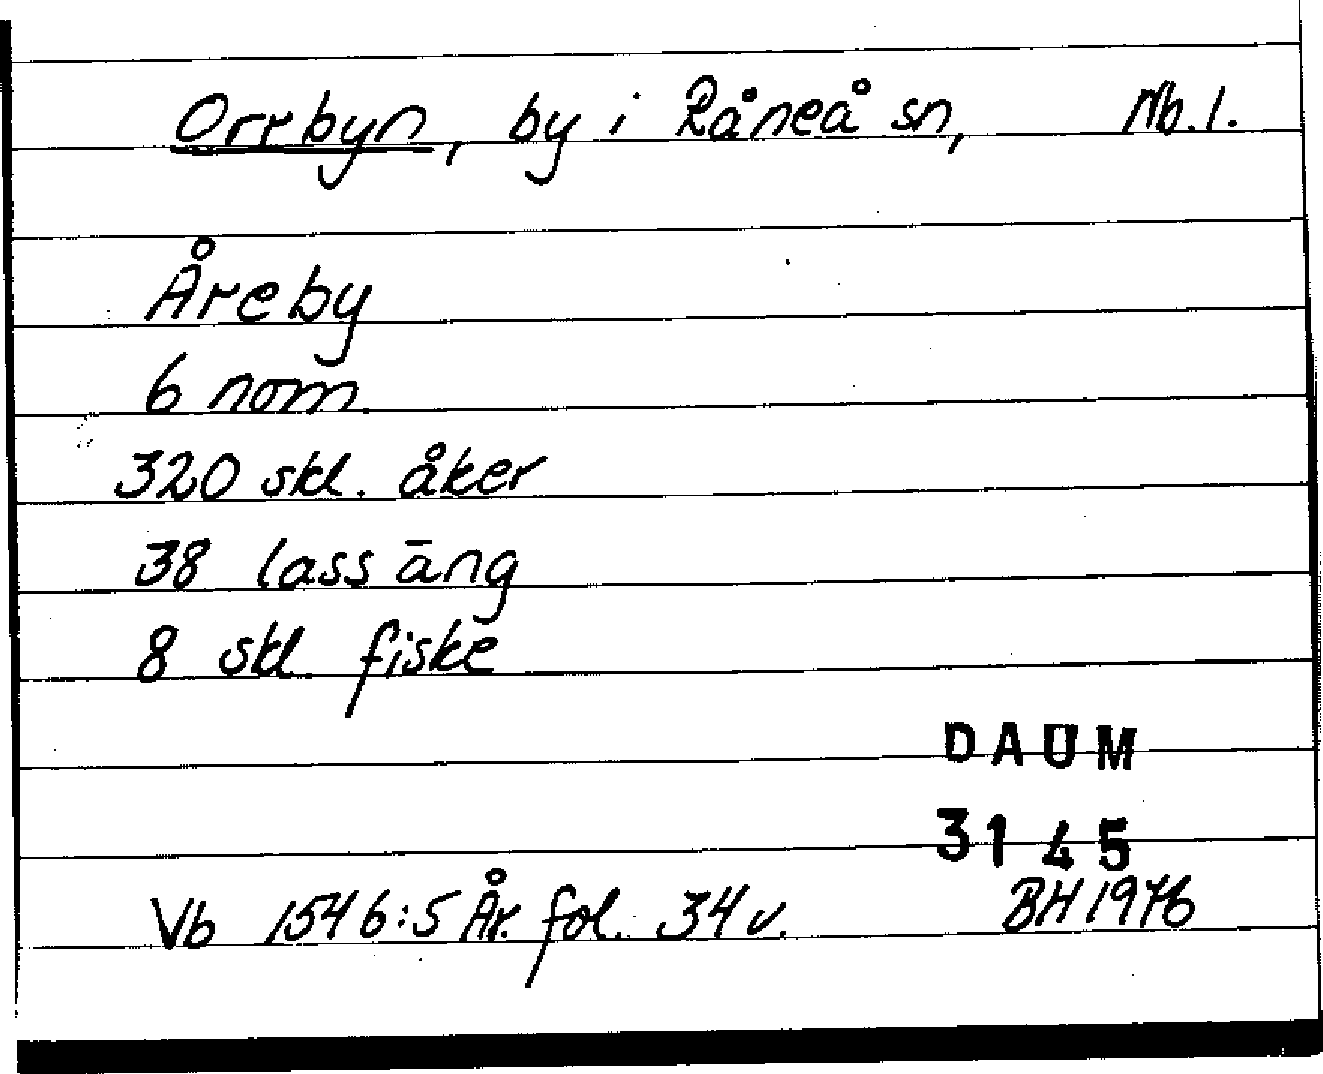 Orrbyn, by i Råneå sn, Nb. l.
Åreby
6 nom
320 skl. åker
38 lass äng
8 skl fiske
DAUM
3145
Vb 1546:5 År. fol. 34 v. BH 1976